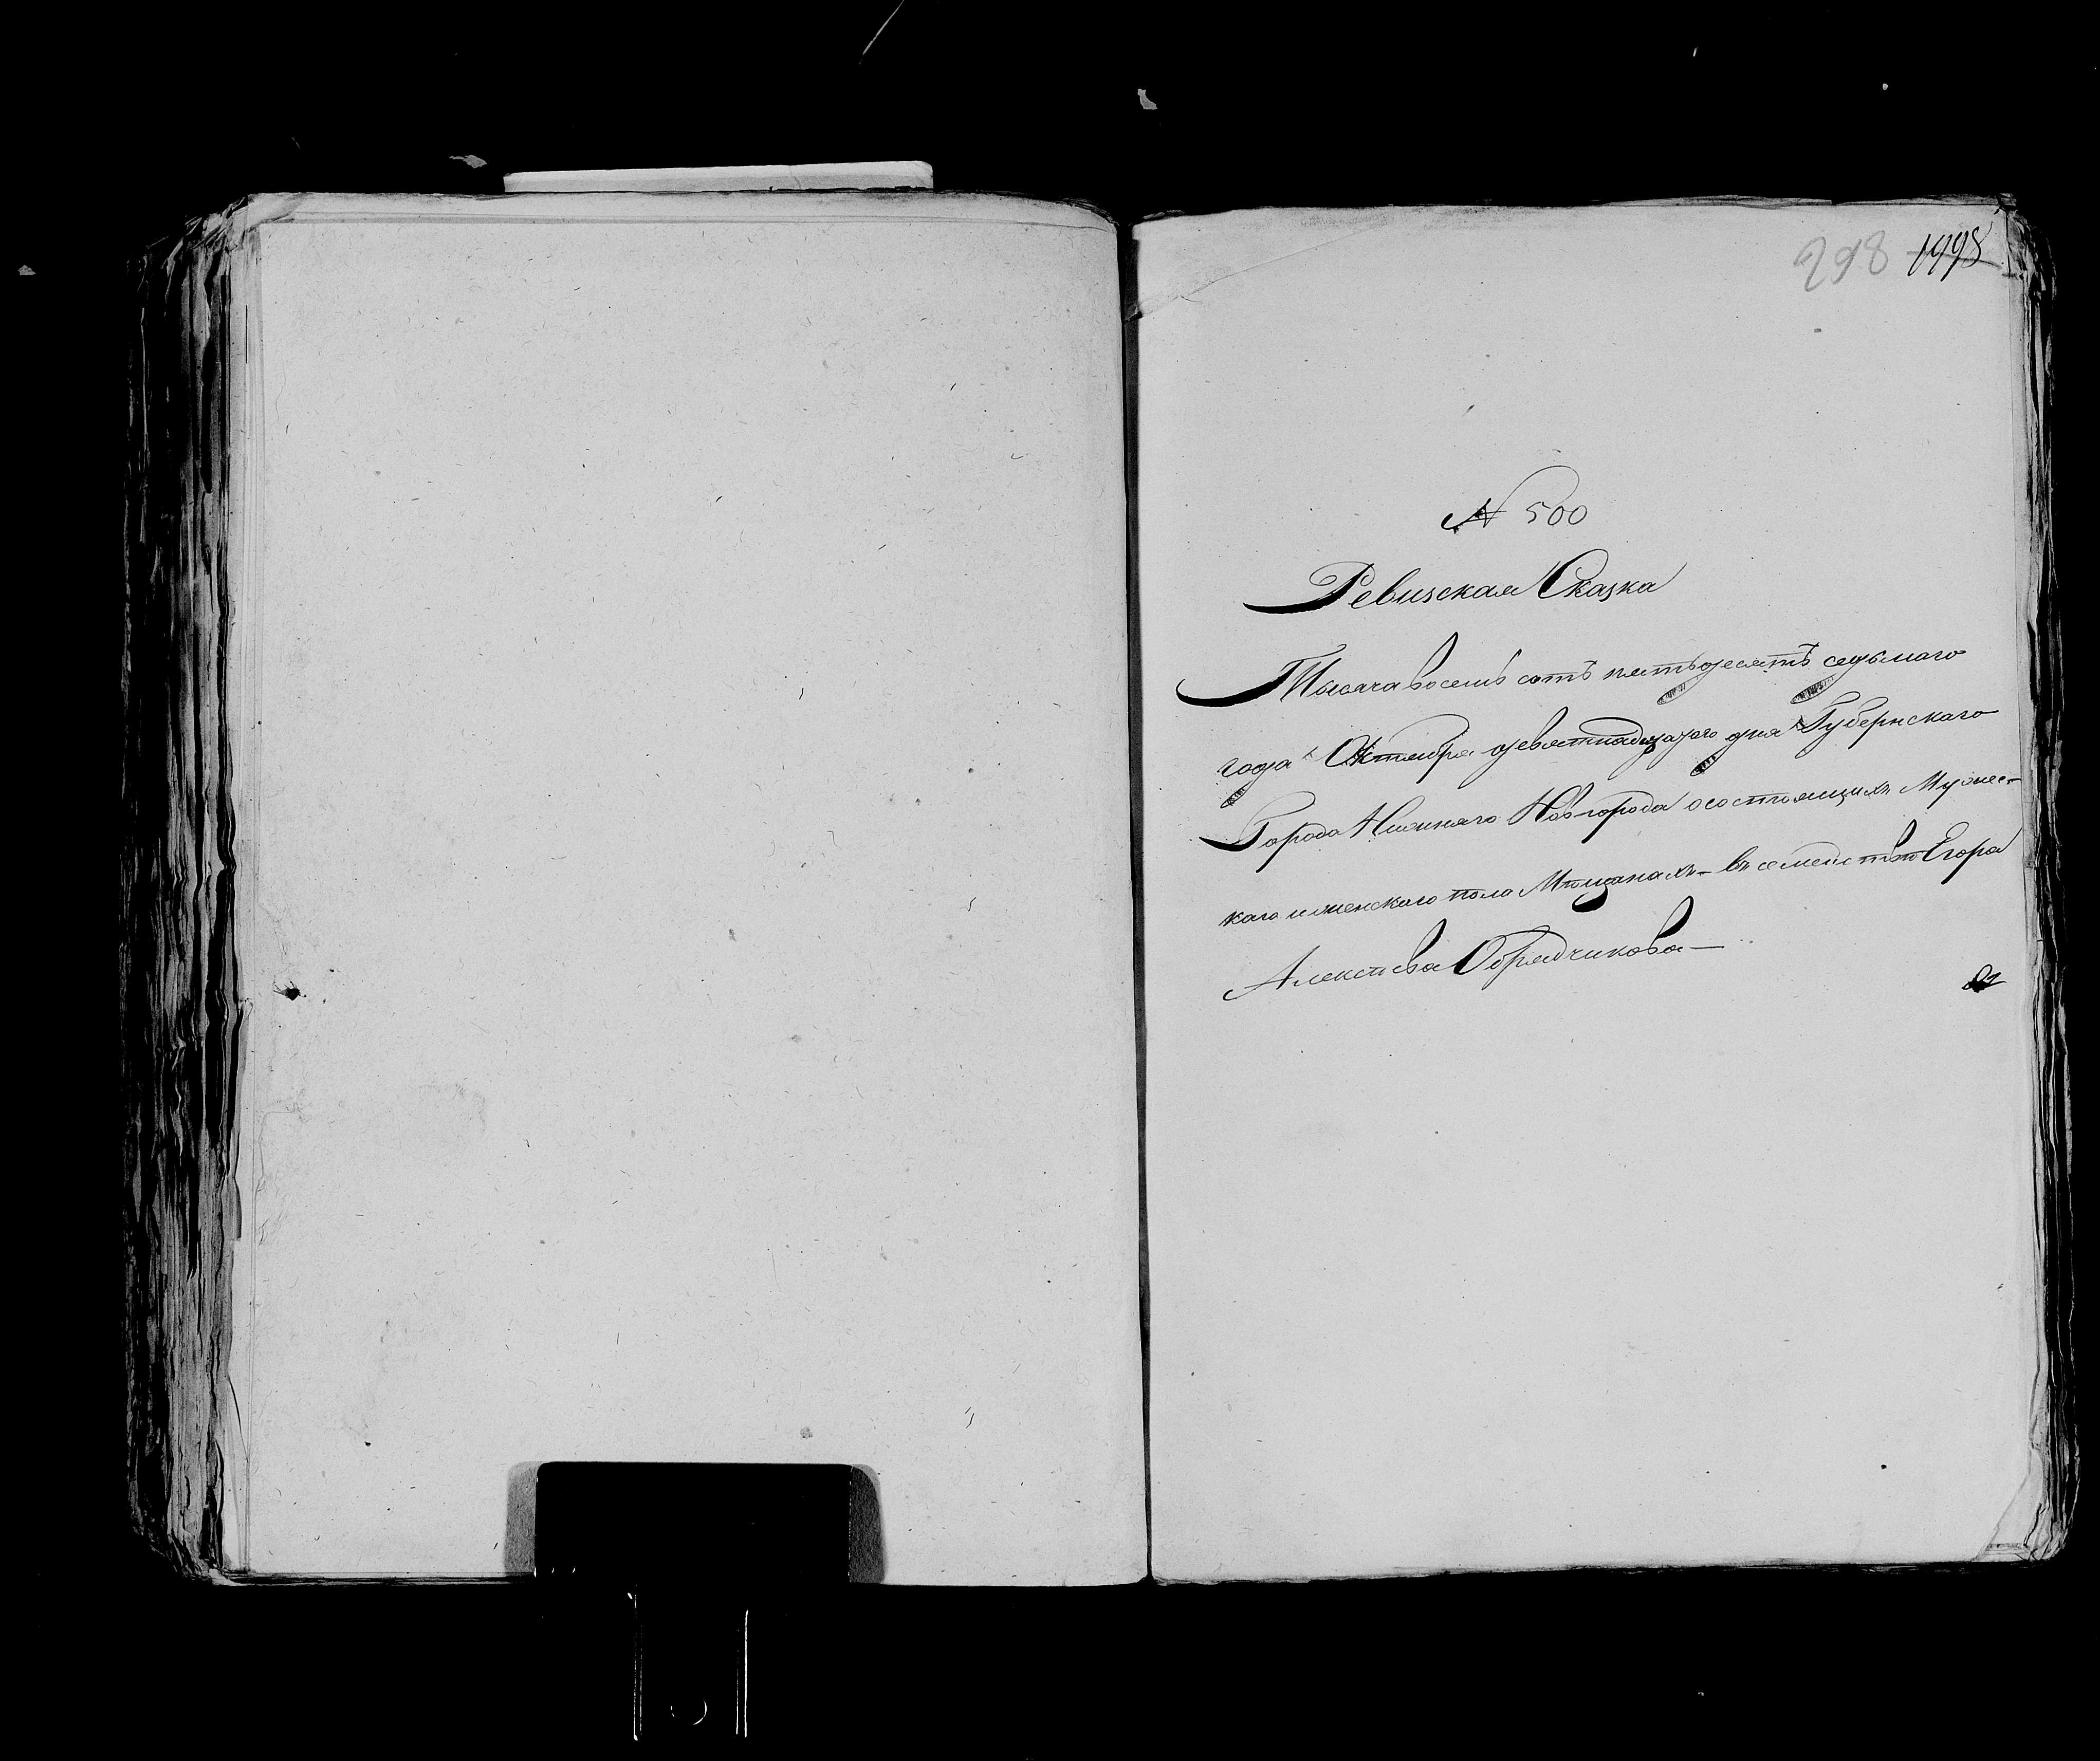 298 1998
№ 500
Ревизская Сказка
Тысяча восемь сотъ пятьдесятъ седьмаго
года Октября девятнадцатого дня Губернскаго
Города Нижняго Новгорода о состоящихъ Мужес-
каго и женскаго пола Мѣщанахъ въ семействѣ Егора
Алексѣева Обрядчикова